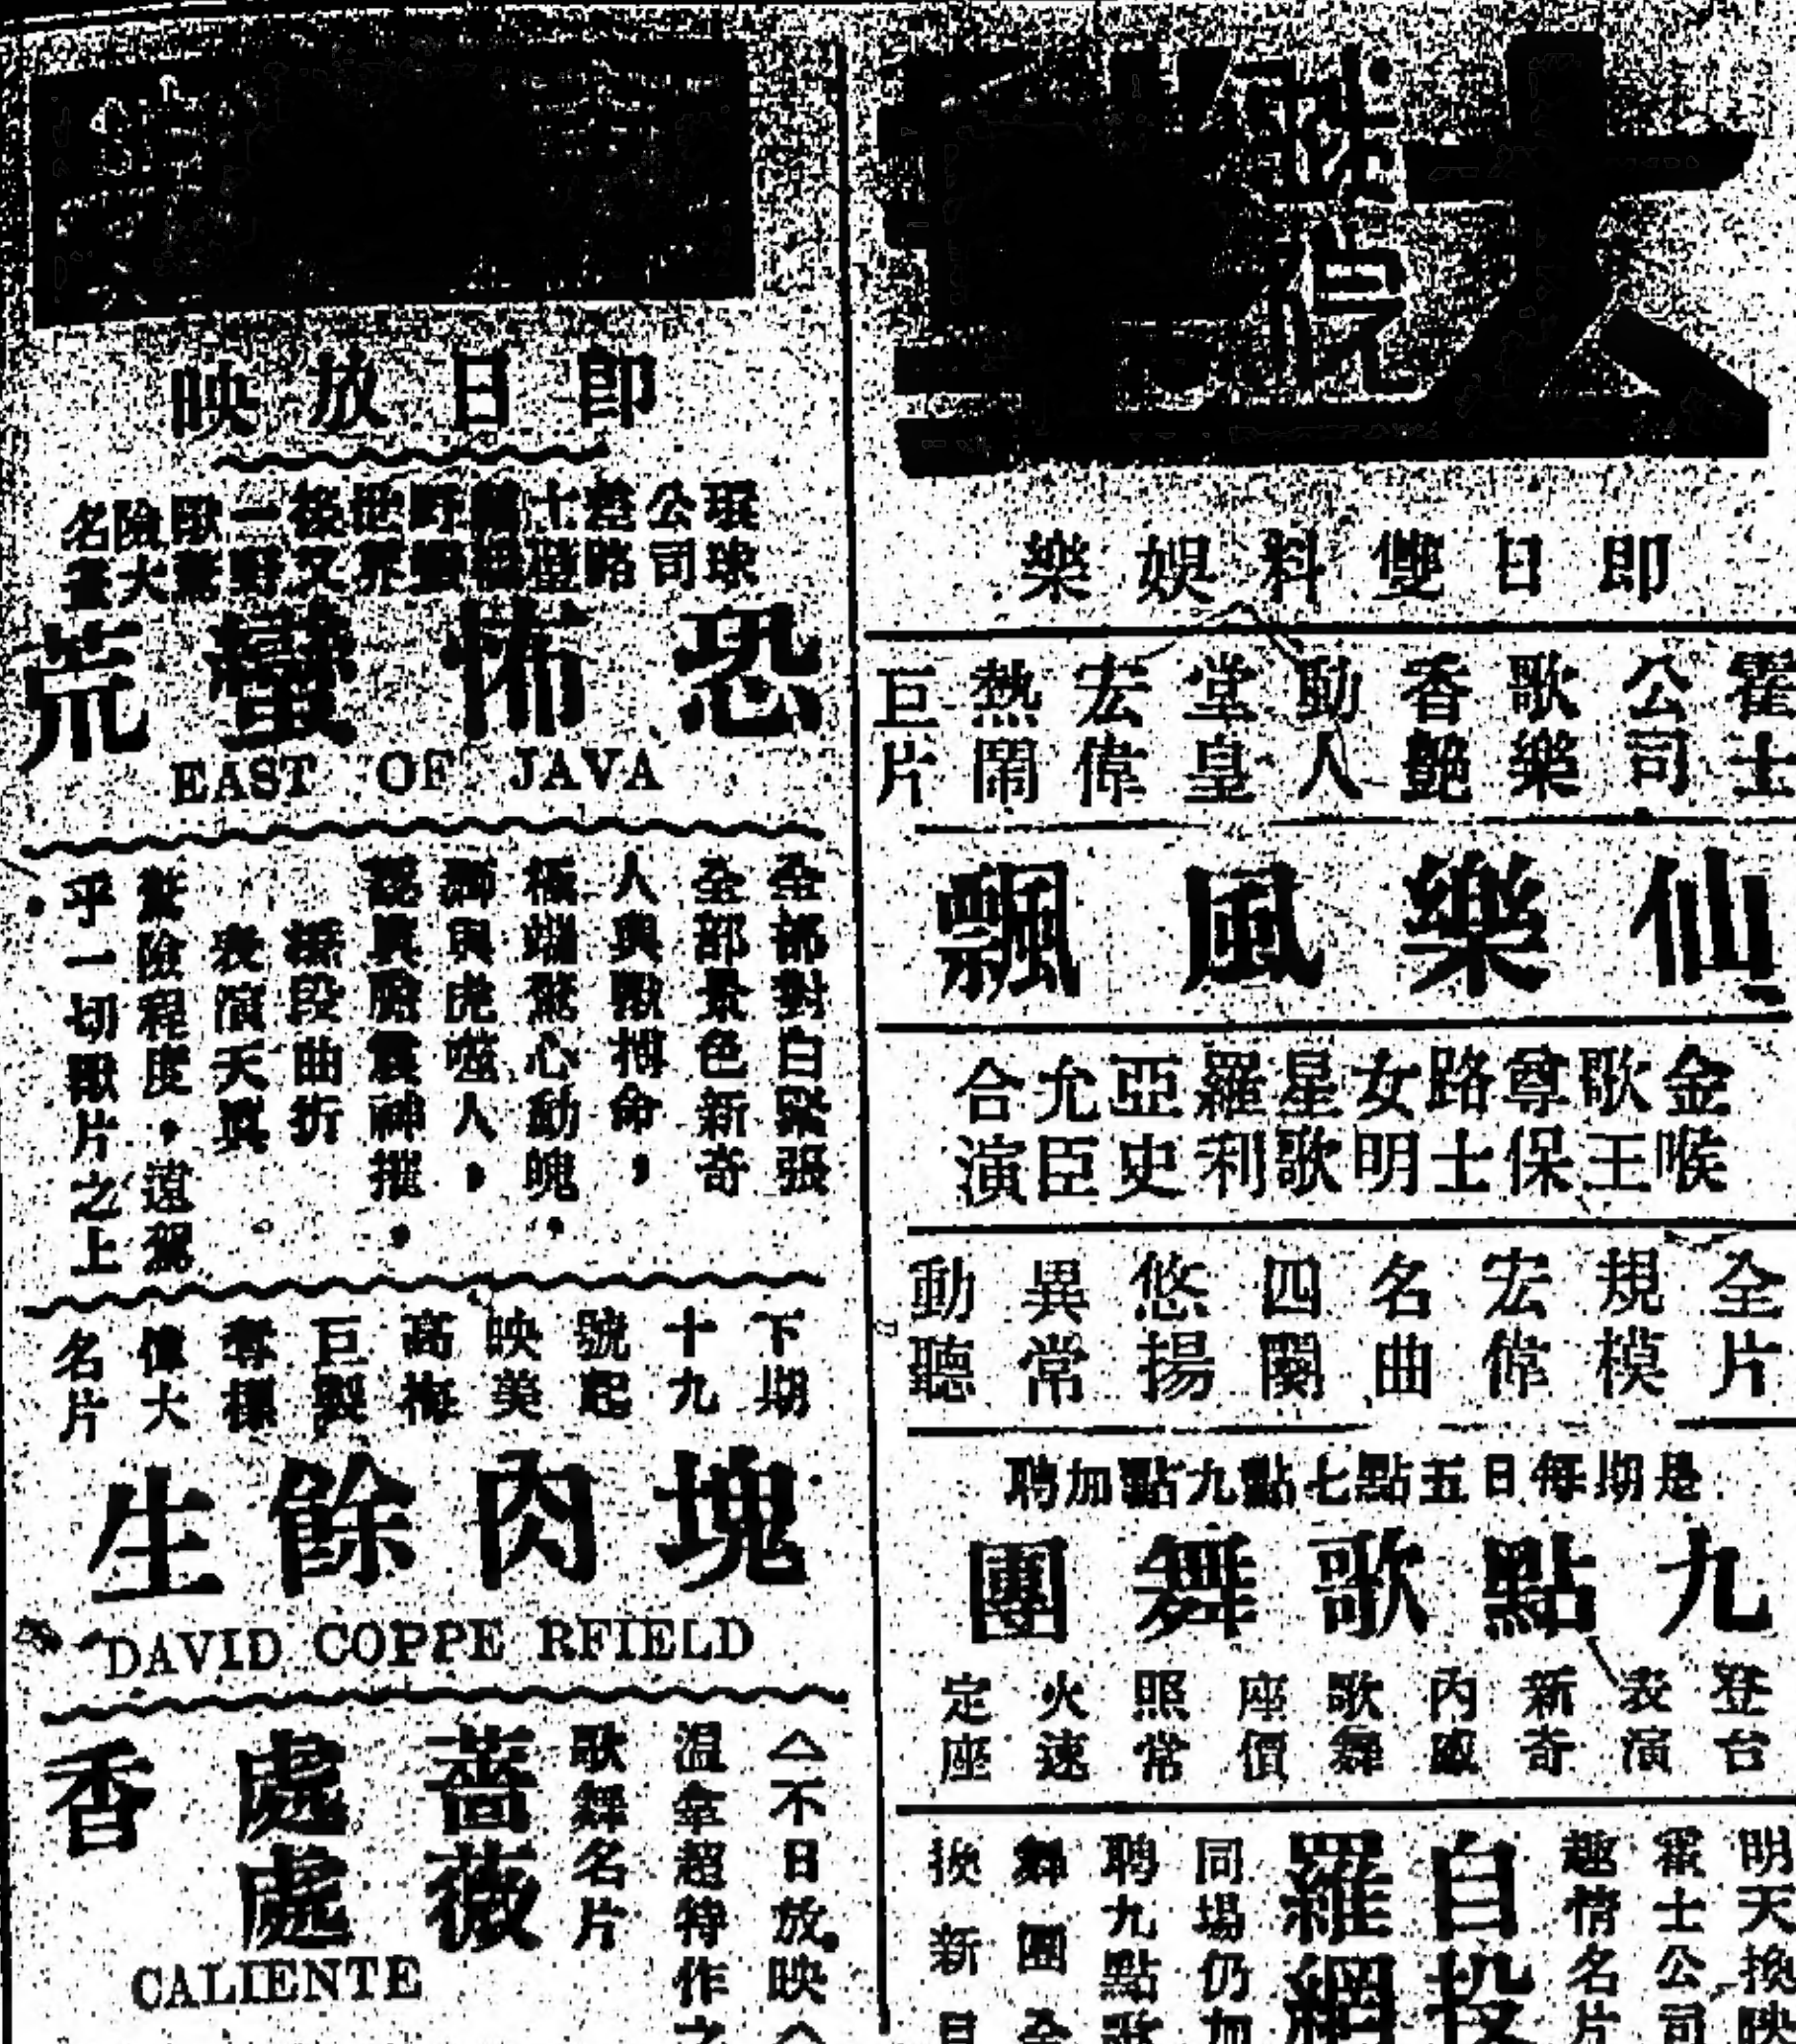 大
戲院
即日雙料娛樂
霍士
公司
歌樂
香艷
動人
堂皇
宏偉
熱鬧
巨片
仙樂風飄
金喉
歌王
尊保
路士
女明
星歌
羅利
亞史
允臣
合演
全片
規模
宏偉
名曲
四闋
悠揚
異常
動聽
是期每日五點七點九點加聘
九點歌舞團
登台
表演
新奇
內
歌舞
座價
照常
火速
定座
明天換映
霍士公司
趣情名片
自投
羅網
同場仍加
聘九點歌
舞團全
換新
即日放映
環球
公司
士
野
世界
後又
一野
獸
險大
名畫
恐怖蠻荒
EAST OF JAVA
全部對白緊張
全部景色新奇
人與獸搏命，
極端驚心動魄．
獅與虎噬人，
段曲折
表演天真。
驚險程度，遠駕
乎一切獸片之上．
下期
十九
號起
映美
高梅
巨製
奪標
偉大
名片
塊肉餘生
DAVID COPPE RFIELD
△不日放映△
温拿超特作之
歌舞名片
薔薇
處處
香
CALIENTE